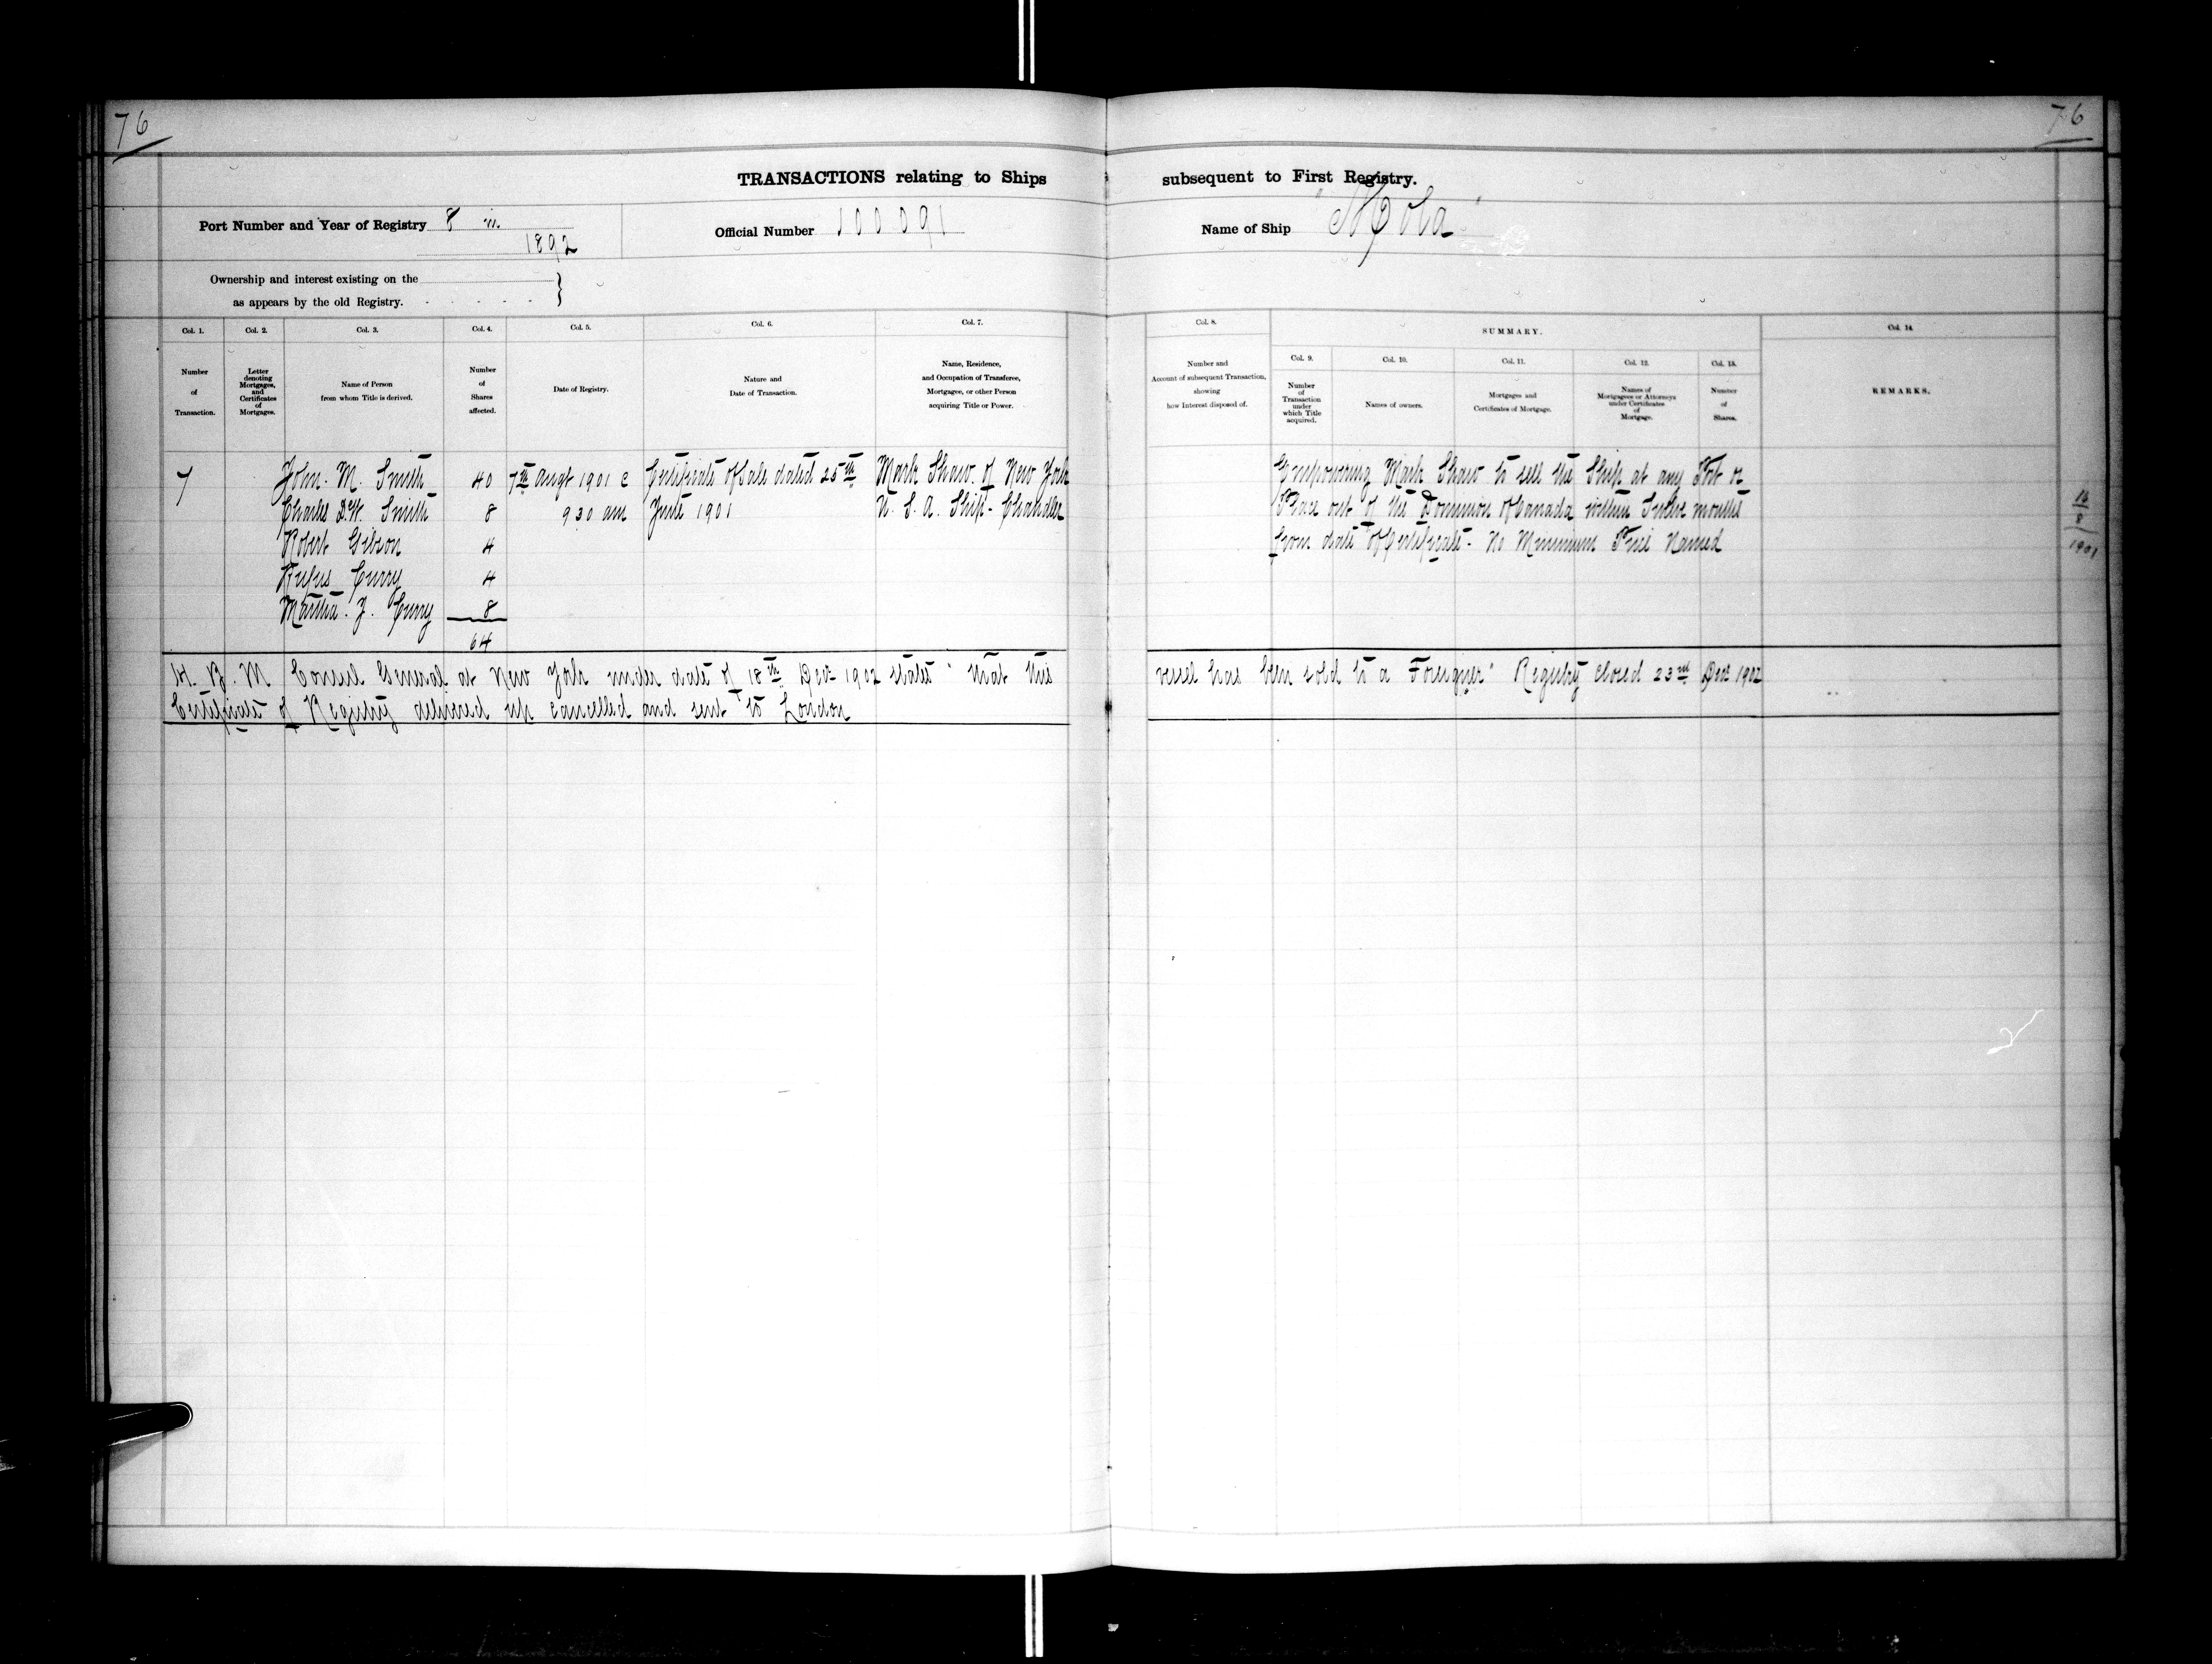 76
76
TRANSACTIONS relating to Ships subsequent to First Registry.
Port Number and Year of Registry 8 in 1892
Official Number 100091
Name of Ship "Mola"
Ownership and interest existing on the
as appears by the old Registry.
Col. 1. Col. 2. Col. 3. Col. 4. Col. 5. Col. 6. Col. 7. Col. 8. SUMMARY. Col. 14.
Number of Transaction.
Letter denoting Mortgages, and Certificates of Mortgages.
Name of Person from whom Title is derived.
Number of Shares affected.
Date of Registry.
Nature and Date of Transaction.
Name, Residence, and Occupation of Transferee, Mortgagee, or other Person acquiring Title or Power.
Number and Account of subsequent Transaction, showing how Interest disposed of.
Col. 9. Number of Transaction under which Title acquired.
Col. 10. Names of owners.
Col. 11. Mortgages and Certificates of Mortgage.
Col. 12. Names of Mortgagees or Attorneys under Certificates of Mortgage.
Col. 13. Number of Shares.
REMARKS.
7 John. M. Smith 40 7th Augt 1901 @ Certificate of Sale dated 25th Mark Shaw of New York Empowering Mark Shaw to sell the Ship at any Port or
Charles D.W. Smith 8 9 30 am June 1901 U. S. A. Ship-Chandler Place out of the Dominion of Canada within Twelve months
Robert Gibson 4 from date of Certificate - No Minimum Price Named
Rufus Curry 4
Martha. J. Curry 8
64
16/8/1901
H. B. M Consul General at New York under date of 18th Decr 1902 states "that this vessel has been sold to a Foreigner" Registry closed 23rd Decr 1902
Certificate of Registry delivered up cancelled and sent to London